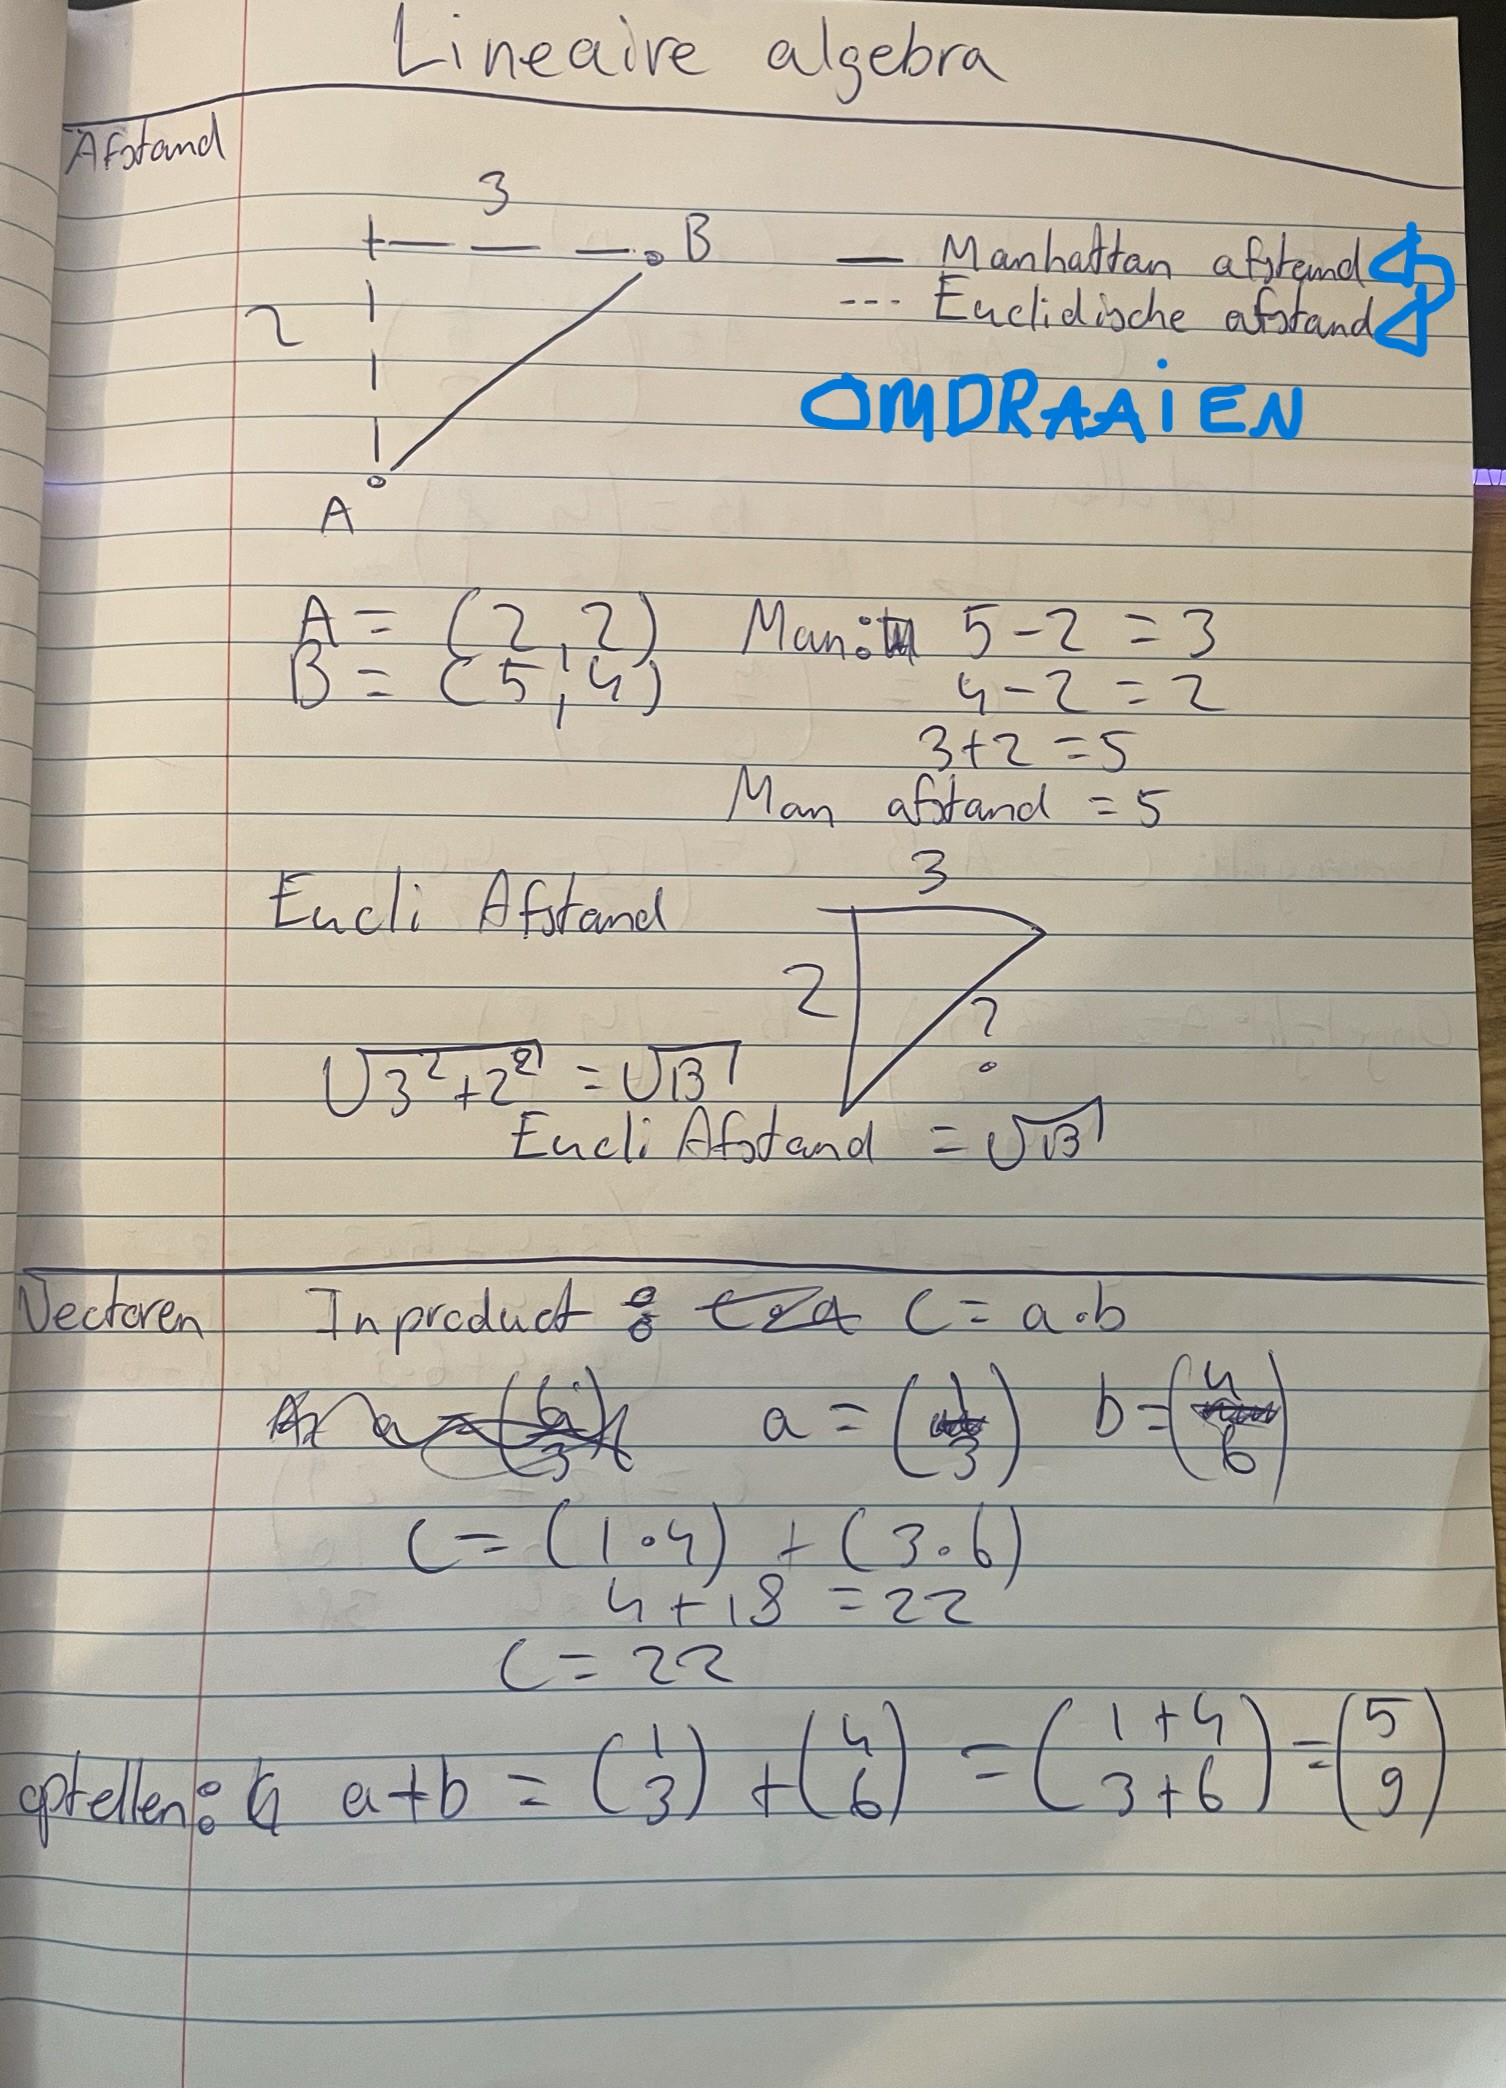 Lineaire algebra
Afstand
3
B
— Manhattan afstand
--- Euclidische afstand
2
OMDRAAIEN
A
A = (2,2) Man: 5-2 = 3
B = (5,4) 4-2 = 2
3+2 = 5
Man afstand = 5
3
Eucli Afstand
2
?
√3²+2² = √13
Eucli Afstand = √13
Vectoren Inproduct: C = a·b
a = (1 3) b = (4 6)
C = (1·4) + (3·6)
4+18 = 22
C = 22
optellen: a+b = (1 3) + (4 6) = (1+4 3+6) = (5 9)